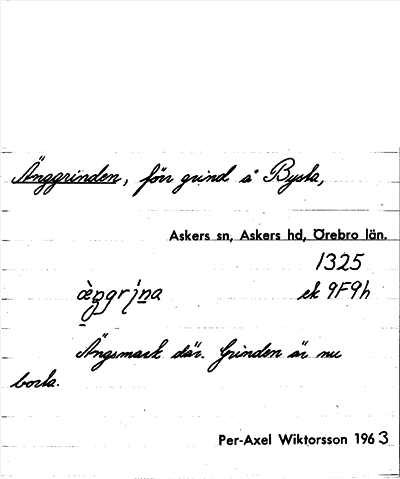 Änggrinden, förr grind å Bysta,
Askers sn, Askers hd, Örebro län.
1325
ek 9F9h
Ängsmark där. Grinden är nu
borta.
Per-Axel Wiktorsson 1963